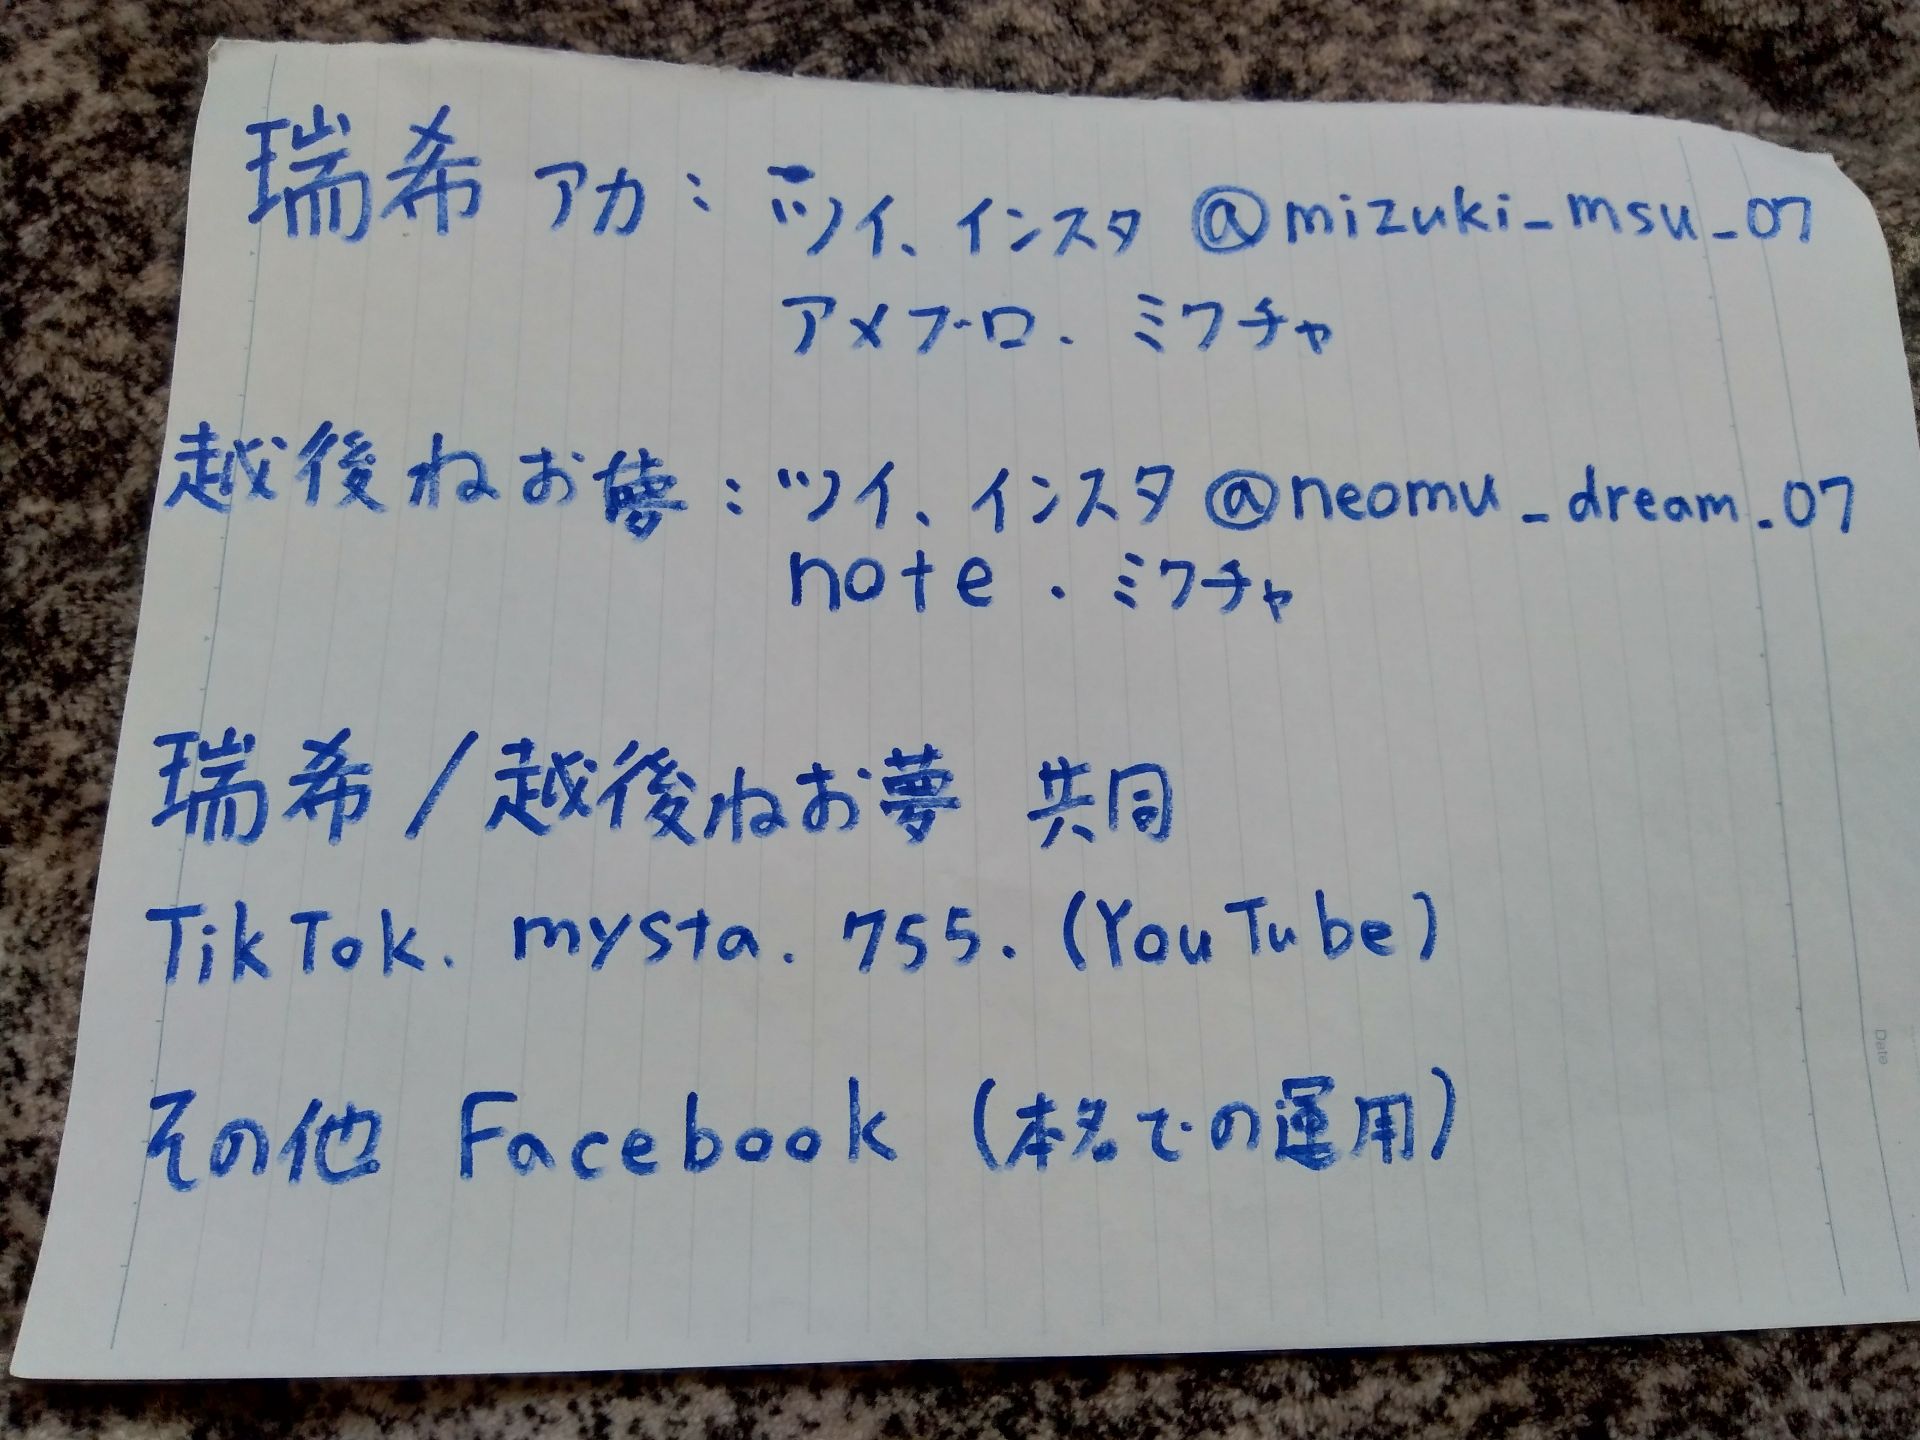 瑞希 アカ：ツイ、インスタ @mizuki_msu_07
アメブロ．ミクチャ
越後ねお夢：ツイ、インスタ @neomu_dream_07
note．ミクチャ
瑞希／越後ねお夢 共同
TikTok．mysta．755．(YouTube)
その他 Facebook (本名での運用)
Date